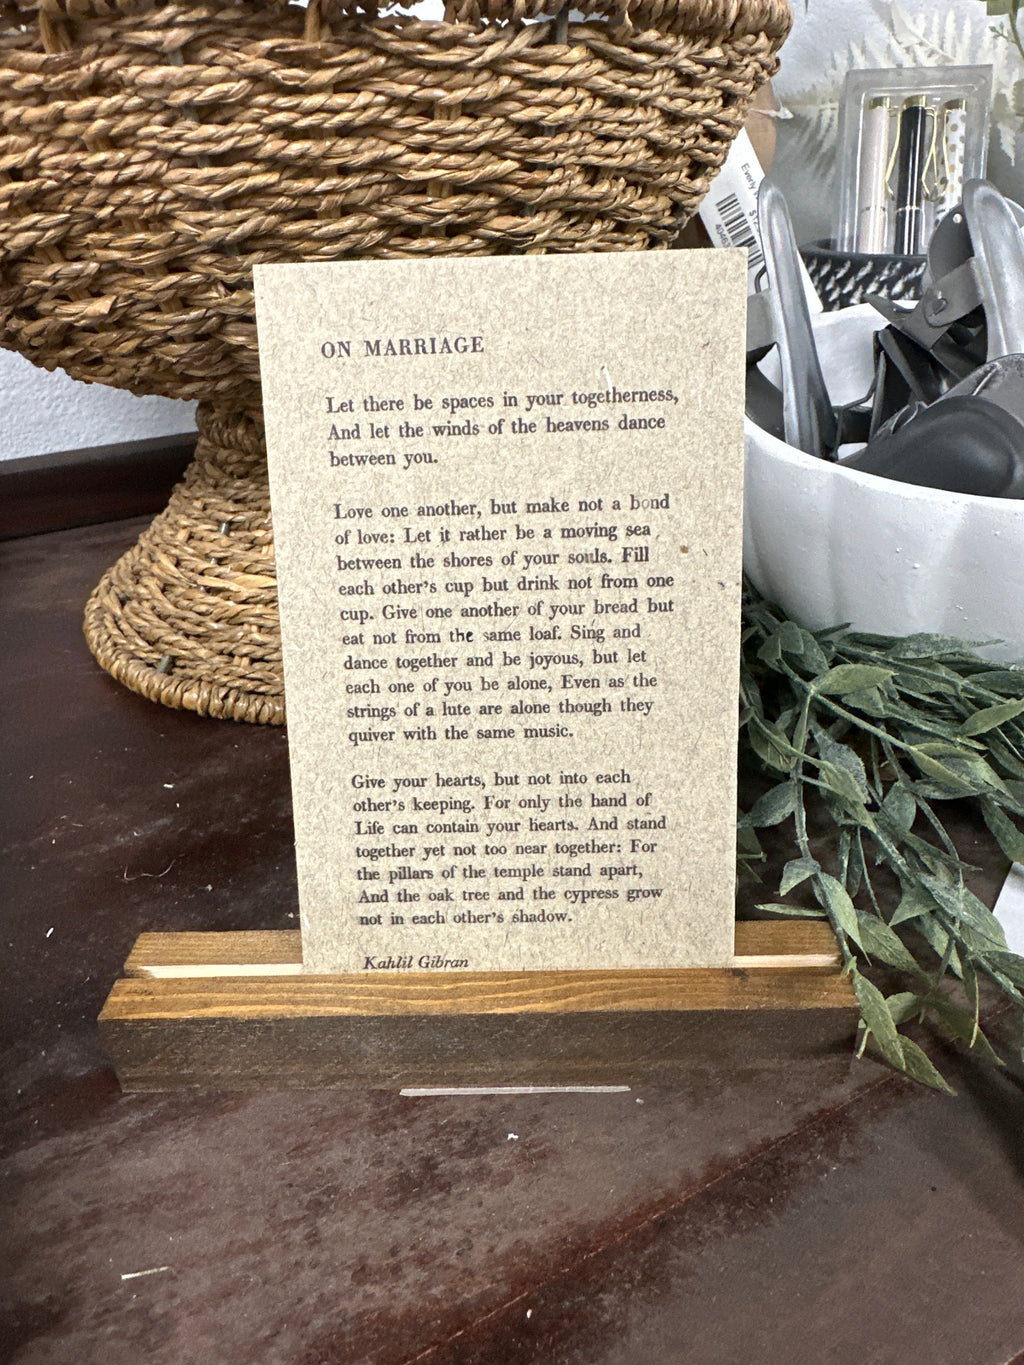 ON MARRIAGE
Let there be spaces in your togetherness,
And let the winds of the heavens dance
between you.
Love one another, but make not a bond
of love: Let it rather be a moving sea
between the shores of your souls. Fill
each other's cup but drink not from one
cup. Give one another of your bread but
eat not from the same loaf. Sing and
dance together and be joyous, but let
each one of you be alone, Even as the
strings of a lute are alone though they
quiver with the same music.
Give your hearts, but not into each
other's keeping. For only the hand of
Life can contain your hearts. And stand
together yet not too near together: For
the pillars of the temple stand apart,
And the oak tree and the cypress grow
not in each other's shadow.
Kahlil Gibran